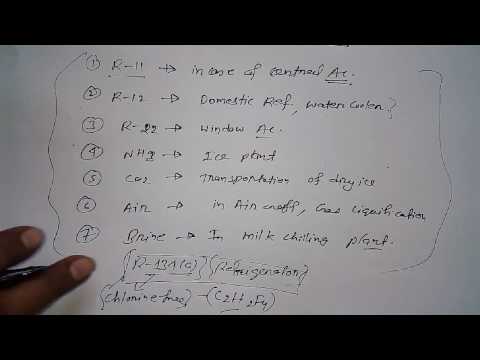 ① R-11 → in case of central Ac.
② R-12 → Domestic Ref, water cooler?
③ R-22 → window Ac.
④ NH3 → Ice plant
⑤ CO2 → Transportation of dry ice
⑥ Air → in Air craft, Gas liquification
⑦ Brine → In milk chilling plant.
(R-134(a)) (Refrigerator)
(Chlorine free) - (C2H2F4)